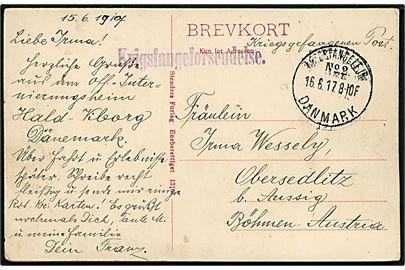 15.6.1917
Liebe Irma!
Herzliche Grüße
aus dem Off. Inter-
nierungsheim
Hald - Viborg
Dänemark.
Über Fahrt u Erlebnisse
später. Schreibe recht
fleißig u sende mir einige
Karten! Es grüßt
nochmals Dich, tante M.
u meine Familie
Dein Franz.
BREVKORT
Kun for Adressen
Krigsfangeforsendelse.
Kriegsgefangenen Post.
No 2
16.6.17 8-10F
DANMARK
Stenders Forlag Eneberettiget
Fräulein
Irma Wessely,
Obersedlitz
b. Aussig
Böhmen - Austria